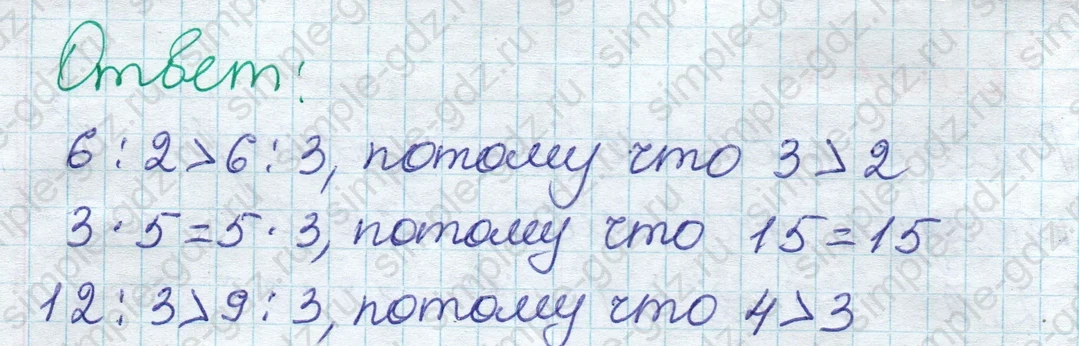 Ответ:
6 : 2 > 6 : 3, потому что 3 > 2
3 · 5 = 5 · 3, потому что 15 = 15
12 : 3 > 9 : 3, потому что 4 > 3
simple-gdz.ru